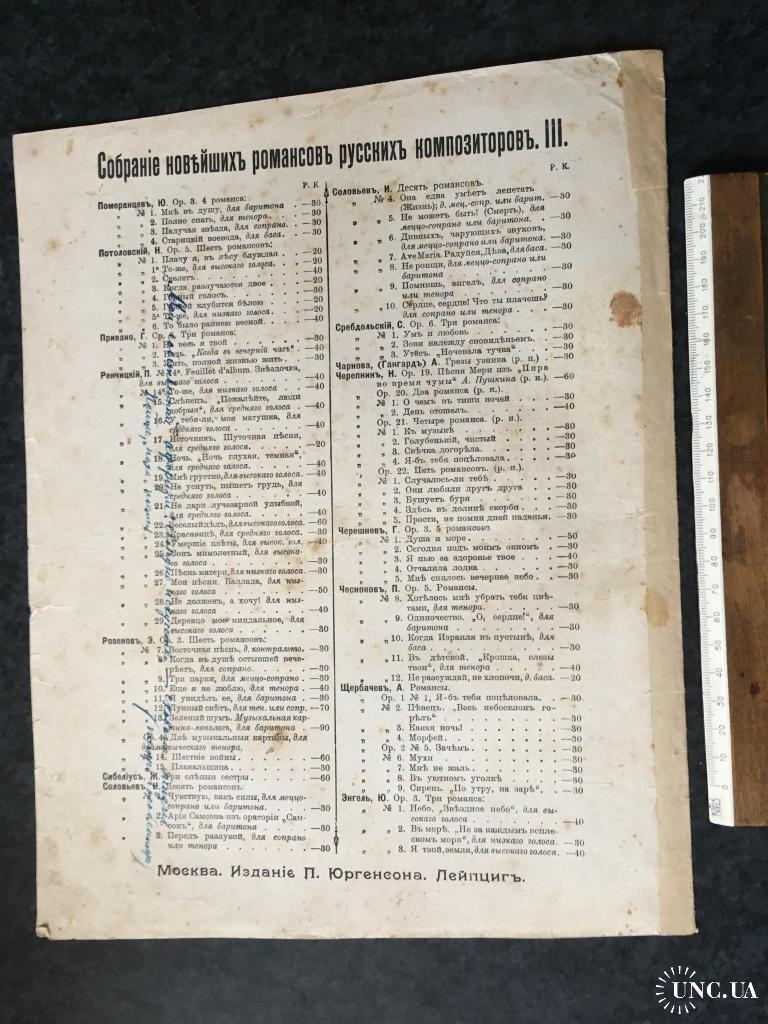 Собраніе новѣйшихъ романсовъ русскихъ композиторовъ. III.
Р. К.
Померанцевъ, Ю. Ор. 3. 4 романса:
„ „ № 1. Мнѣ въ душу, для баритона . —30
„ „ „ 2. Полно спать, для тенора. . . —30
„ „ „ 3. Падучая звѣзда, для сопрано. —30
„ „ „ 4. Старицкій воевода, для баса. —30
Потоловскій, Н. Ор. 5. Шесть романсовъ:
№ 1. Плачу я, въ лѣсу блуждая . —20
„ 1ª То-же, для высокаго голоса. . —20
„ 2. Слѣпецъ. —40
„ 3. Когда разлучаются двое . . —20
„ 4. голосъ. —30
„ 5. клубится бѣлою . . —20
„ 5ª То-же, для низкаго голоса. . —20
„ 6. То было раннею весной. . . —40
Привано, Г. Ор. 6. Три романса:
№ 1. весь я твой . . . —30
„ 2. „Когда въ вечерній часъ“ —40
„ 3. Жить, полной жизнью жить . —30
Ренчицкій, П. № 14. Feuillet d'album. Звѣздочка,
для высокаго голоса . . . —40
№ 14ª То-же, для низкаго голоса —40
„ 15. Слѣпецъ. „Пожалѣйте, люди
добрые“, для средняго голоса . —40
„ 16. тебя-ли, моя матушка, для
средняго голоса . . . —40
„ 17. Источникъ. Шуточная пѣсня,
для средняго голоса. . . —20
„ 18. Ночь. „Ночь глухая, темная“,
для средняго голоса. . . —40
„ 19. Мнѣ грустно, для высокаго голоса. —40
„ 20. Не уснуть, пышетъ грудь, для
средняго голоса . . . —40
„ 21. Не дари лучезарной улыбкой,
для высокаго голоса . . . —40
„ 22. Веселый дѣдъ, для высокаго голоса. —60
„ 23. Красавицѣ, для средняго голоса. —30
„ 24. Умершіе цвѣты, для высок. гол. —40
„ 25. Сонъ мимолетный, для высока-
го голоса . . . —30
„ 26. Пѣснь матери, для низкаго голоса. —30
„ 27. Мои пѣсни. Баллада, для низ-
каго голоса . . . —50
„ 28. Не долженъ, а хочу! для низ-
каго голоса . . . —40
„ 29. Деревцо мое миндальное, для
высокаго голоса . . . —30
Розеновъ, Э. Ор. 3. Шесть романсовъ:
№ 7. Восточная пѣснь, д. контральто. —30
„ 8. Когда въ душѣ остывшей вече-
рѣетъ, для сопрано. . . —30
„ 9. Три парки, для меццо-сопрано —30
„ 10. Еще я не люблю, для тенора . —40
„ 11. Я увидѣлъ ее, для баритона . —30
„ 12. Лунный свѣтъ, для тен. или сопр. —70
„ 13. Зеленый шумъ. Музыкальная кар-
тина-монологъ, для баритона —90
Ор. 4. Двѣ музыкальныя картины, для
драматическаго тенора,
„ 14. Шествіе войны . . . —60
„ 15. Плакальщица . . . —30
Сибеліусъ, Ж. Три слѣпыя сестры . . . —60
Соловьевъ, И. Десять романсовъ:
Чувствую, какъ силы, для меццо-
сопрано или баритона. . . —30
„ 2. Арія Самсона изъ ораторіи „Сам-
сонъ“, для баритона . . . —30
„ 3. Передъ разлукой, для сопрано
или тенора . . . —30
Р. К.
Соловьевъ, И. Десять романсовъ.
№ 4. Она едва умѣетъ лепетать
(Жизнь); д. мец.-сопр. или барит. —30
„ 5. Не можетъ быть! (Смерть), для
меццо-сопрано или баритона. . —30
„ 6. Дивныхъ, чарующихъ звуковъ,
для меццо-сопрано или баритона. —30
„ 7. Ave Maria. Радуйся, Дѣва, для баса. —30
„ 8. Не ропщи, для меццо-сопрано или
баритона . . . —30
„ 9. Помнишь, ангелъ, для сопрано
или тенора . . . —30
„ 10. Сердце, сердце! Что ты плачешь?
для сопрано или тенора . . —30
Сребдольскій, С. Ор. 6. Три романса:
№ 1. Умъ и любовь . . . —30
„ 2. Зови надежду сновидѣньемъ. . —30
„ 3. Утёсъ. „Ночевала тучка“ . . —30
Чарнова, (Гангардъ) А. Грезы узника (р. н.) . —30
Черепнинъ, Н. Ор. 19. Пѣсня Мери изъ „Пира
во время чумы“ А. Пушкина (р. н.). —60
Ор. 20. Два романса (р. н.).
№ 1. О чемъ въ тиши ночей . . . —30
„ 2. День отошелъ. . . —40
Ор. 21. Четыре романса. (р. н.).
№ 1. Къ музыкѣ . . . —30
„ 2. Голубенькій, чистый . . . —30
„ 3. Свѣчка догорѣла. . . —30
„ 4. Я-бъ тебя поцѣловала. . . —30
Ор. 22. Пять романсовъ. (р. н.).
№ 1. Случалось-ли тебѣ . . . —30
„ 2. Они любили другъ друга . . —30
„ 3. Бушуетъ буря . . . —30
„ 4. Здѣсь въ долинѣ скорби . . —30
„ 5. Прости, не помни дней паденья. —30
Черешневъ, Г. Ор. 3. 5 романсовъ
№ 1. Душа и море . . . —50
„ 2. Сегодня подъ моимъ окномъ . . —30
„ 3. Я пью за здоровье твое . . —40
„ 4. Отчалила лодка . . . —30
„ 5. Мнѣ снилось вечернее небо . . —30
Чесноковъ, П. Ор. 5. Романсы.
№ 8. Хотѣлось мнѣ убрать тебя цвѣ-
тами, для тенора. . . —30
„ 9. Одиночество. „О, сердце!“, для
баритона . . . —30
„ 10. Когда Израиля въ пустынѣ, для
баса . . . —30
„ 11. Въ дѣтской. „Крошка, слезы
твои“, для тенора . . . —40
„ 12. Не разсуждай, не хлопочи, д. баса. —20
Щербачевъ, А. Романсы.
Ор. 1 № 1, Я-бъ тебя поцѣловала, . —30
№ 2. Пѣвецъ. „Весь небосклонъ го-
рѣлъ“ . . . —30
„ 3. Какая ночь! . . . —30
„ 4. Морфей. . . —30
Ор. 2 № 5. Зачѣмъ. . . —30
№ 6. Мухи . . . —30
„ 7. Мнѣ не жаль. . . —30
„ 8. Въ уютномъ уголкѣ . . . —30
„ 9. Сирень. „По утру, на зарѣ“. . —30
Энгель, Ю. Ор. 3. Три романса:
№ 1. Небо. „Звѣздное небо“, для вы-
сокаго голоса . . . —40
„ 2. Въ морѣ. „Не за каждымъ вспле-
скомъ моря“, для низкаго голоса. —30
„ 3. Я твой, земля, для высокаго голоса. —40
Москва. Изданіе П. Юргенсона. Лейпцигъ.
UNC.UA